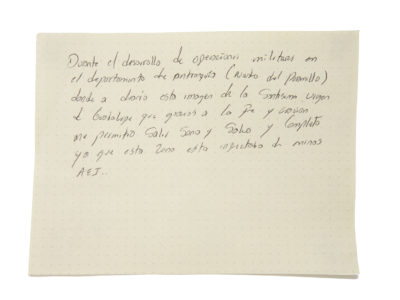 Durante el desarrollo de operaciones militares en
el departamento de antioquia (Nudo del Paramillo)
donde a diario esta imagen de la Santisima virgen
d Guadalupe que gracias a la Fe y oracion
me permitio Salir Sano y Salvo y Completo
ya que esta zona esta infestada de minas
A.E.I..